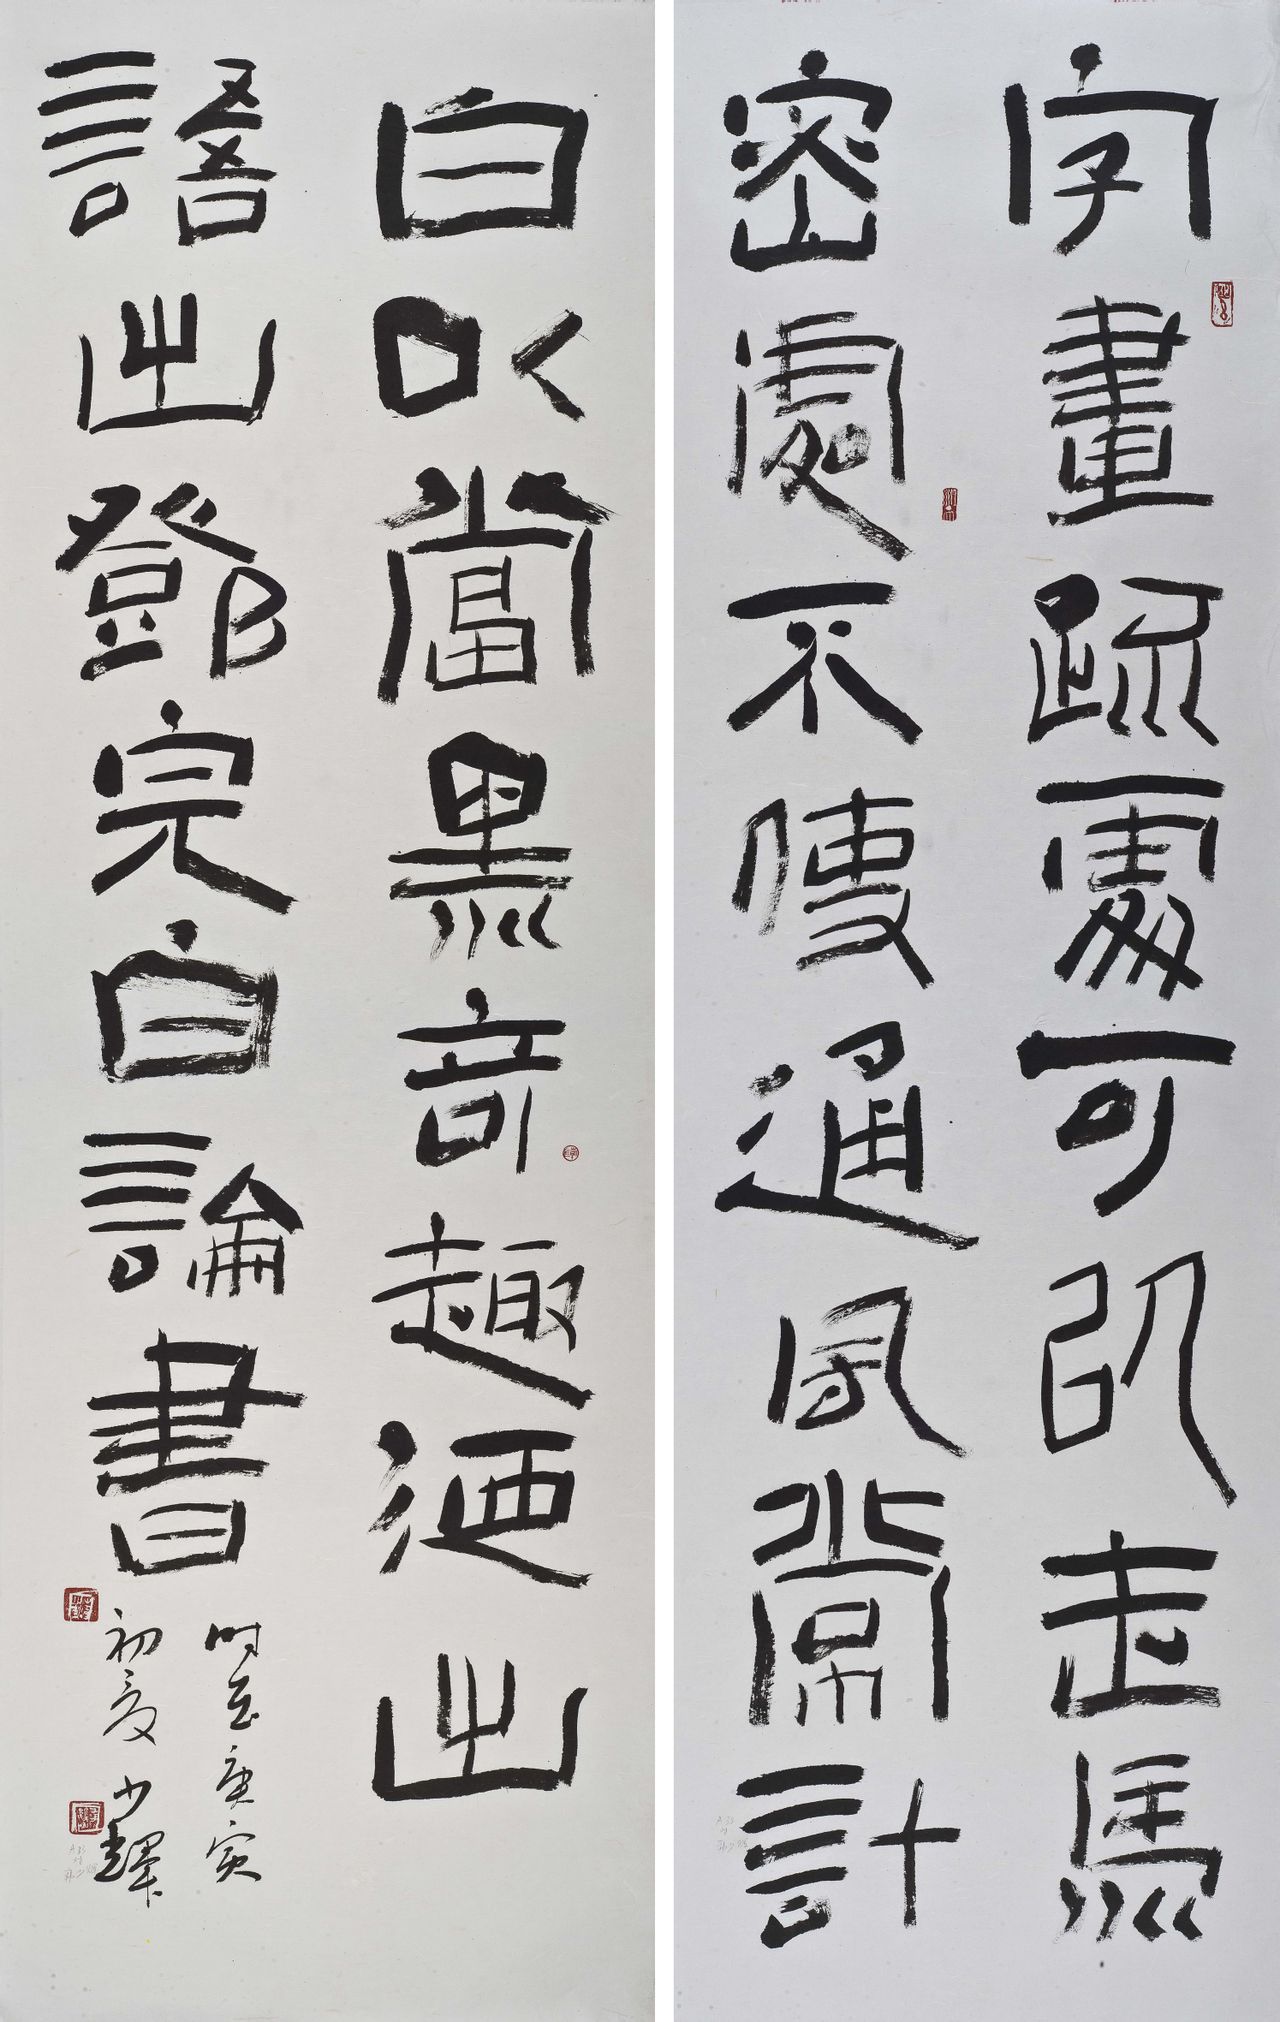 字畫疏處可以走馬
密處不使通風常計
白以當黑奇趣迺出
語出鄧完白論書
时在庚寅
初夏 少